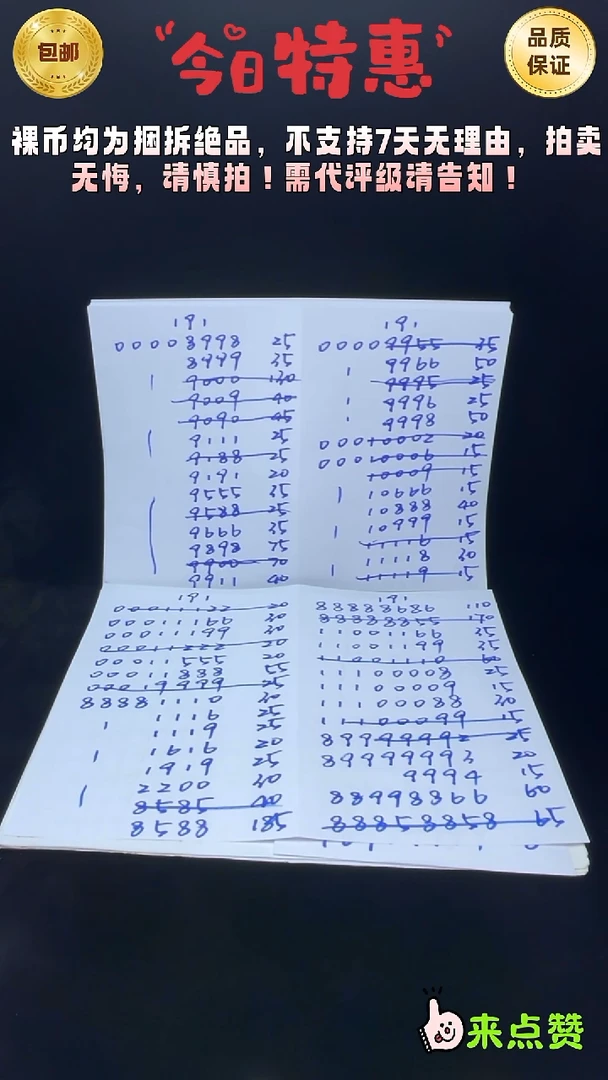 包邮
今日特惠
品质
保证
裸币均为捆拆绝品，不支持7天无理由，拍卖
无悔，请慎拍！需代评级请告知！
191
00008998 25
8999 35
9000 130
9009 40
9090 45
9111 25
9188 25
9191 20
9555 35
9588 25
9666 35
9898 75
9900 70
9911 40
191
00009955 35
9966 50
9995 25
9996 25
9998 50
00010002 20
00010006 15
10009 15
10666 15
10888 40
10999 15
11116 15
11118 30
11119 15
191
00011122 20
00011166 30
00011199 30
00011222 20
00011555 20
00011888 55
00019999 25
88881110 30
1116 25
1119 25
1616 20
1919 25
2200 30
8585 40
8588 185
191
88888686 110
88888855
11001166 35
11001199 35
11100008 25
11100009 15
11100088 30
11100099 15
89999992 25
89999993 20
9994 15
88998866 60
88858858 59
来点赞